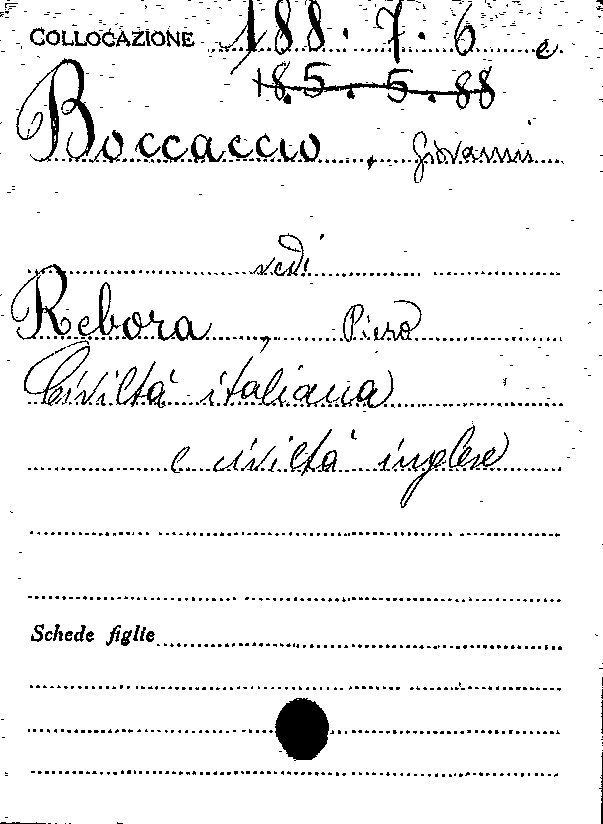 COLLOCAZIONE 188.7.6 e
18.5.5.88
Boccaccio, Giovanni
vedi
Rebora, Piero
Civiltà italiana
e civiltà inglese
Schede figlie